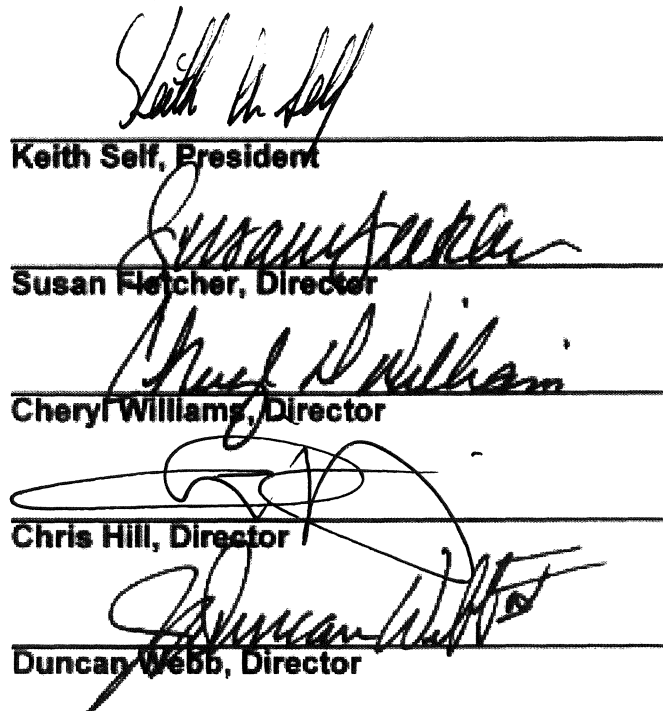 Keith A Self
Keith Self, President
Susan Fletcher
Susan Fletcher, Director
Cheryl D Williams
Cheryl Williams, Director
Chris Hill, Director
J Duncan Webb IV
Duncan Webb, Director